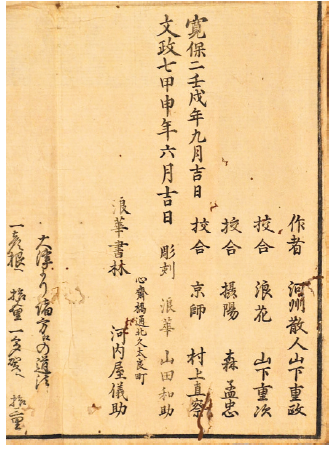 作者　河州散人山下重政
挍合　浪花　山下重次
挍合　摂陽　森孟忠
挍合　京師　村上真察
寛保二壬戌年九月吉日
文政七甲申年六月吉日
彫刻　浪華　山田和助
心斎橋通北久太良町
浪華書林　河内屋儀助
大津より諸方への道法
一彦根へ　拾里　一多賀へ　拾里